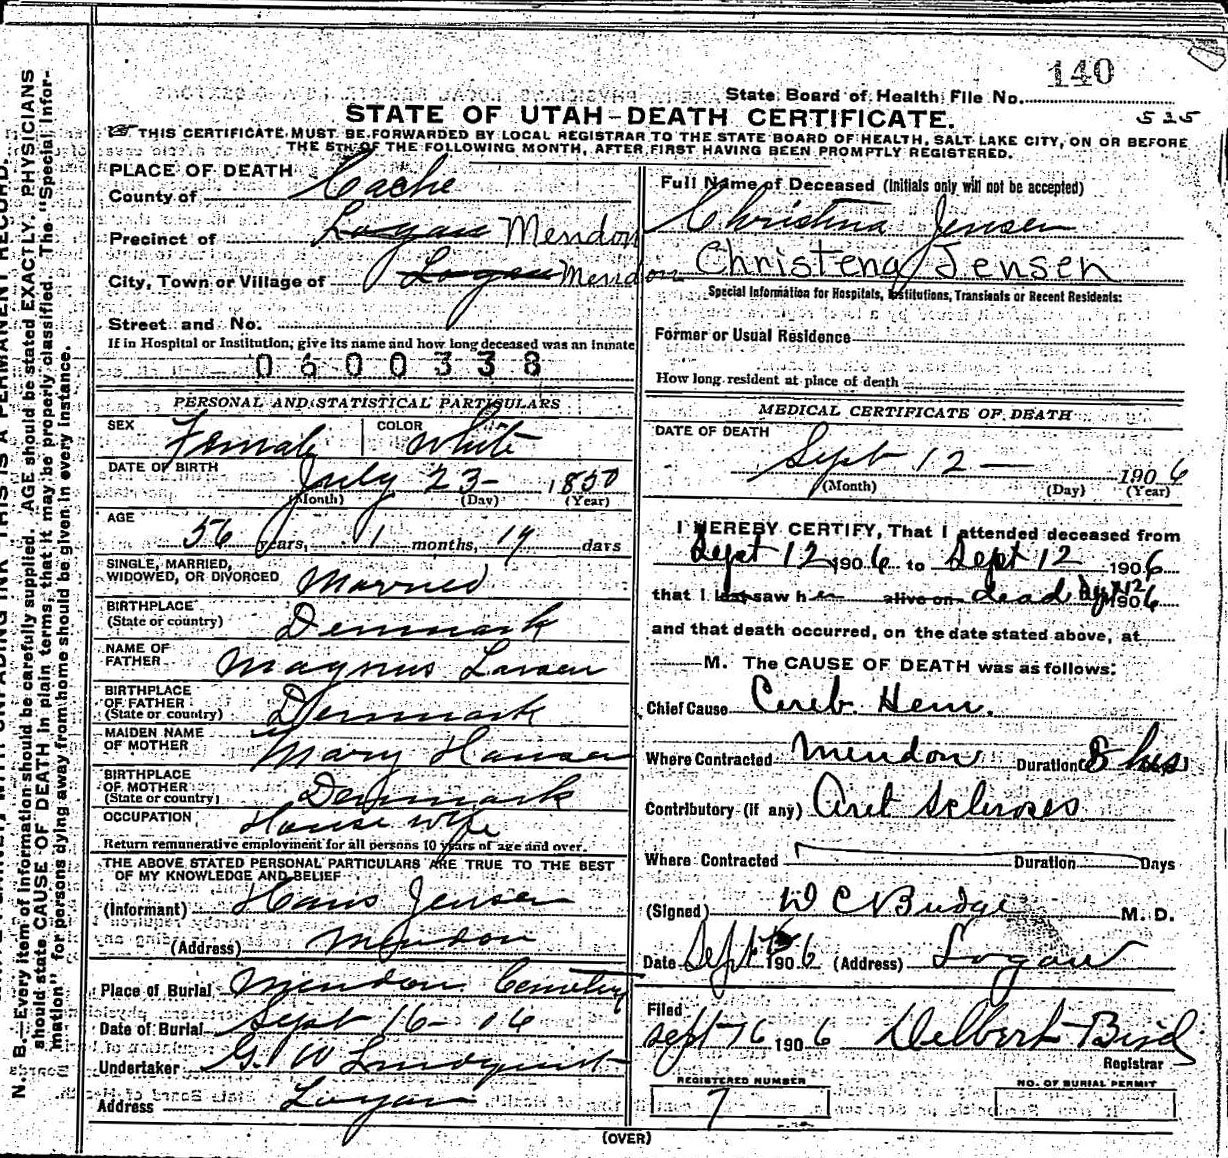 140
State Board of Health File No.
STATE OF UTAH-DEATH CERTIFICATE.
535
THIS CERTIFICATE MUST BE FORWARDED BY LOCAL REGISTRAR TO THE STATE BOARD OF HEALTH, SALT LAKE CITY, ON OR BEFORE
THE 5TH OF THE FOLLOWING MONTH, AFTER FIRST HAVING BEEN PROMPTLY REGISTERED.
PLACE OF DEATH
County of Cache
Precinct of Logan Mendon
City, Town or Village of Logan Mendon
Street and No.
If in Hospital or Institution, give its name and how long deceased was an inmate
0600338
PERSONAL AND STATISTICAL PARTICULARS
SEX Female COLOR White
DATE OF BIRTH July 23- 1850
(Month) (Day) (Year)
AGE
56 years, 1 months, 19 days
SINGLE, MARRIED,
WIDOWED, OR DIVORCED Married
BIRTHPLACE
(State or country) Denmark
NAME OF
FATHER Magnus Larsen
BIRTHPLACE
OF FATHER
(State or country) Denmark
MAIDEN NAME
OF MOTHER Mary Hansen
BIRTHPLACE
OF MOTHER
(State or country) Denmark
OCCUPATION House wife
Return remunerative employment for all persons 10 years of age and over.
THE ABOVE STATED PERSONAL PARTICULARS ARE TRUE TO THE BEST
OF MY KNOWLEDGE AND BELIEF
(Informant) Hans Jensen
(Address) Mendon
Place of Burial Mendon Cemetery
Date of Burial Sept 16- 06
Undertaker G. W Lundquist
Address Logan
Full Name of Deceased (Initials only will not be accepted)
Christina Jensen
Christena Jensen
Special Information for Hospitals, Institutions, Transients or Recent Residents:
Former or Usual Residence
How long resident at place of death
MEDICAL CERTIFICATE OF DEATH
DATE OF DEATH
Sept 12 — 1906
(Month) (Day) (Year)
I HEREBY CERTIFY, That I attended deceased from
Sept 12 1906 to Sept 12 1906
that I last saw her alive on dead Sept 12 1906
and that death occurred, on the date stated above, at
M. The CAUSE OF DEATH was as follows:
Chief Cause Cereb. Hem.
Where Contracted Mendon Duration 8 hrs
Contributory (if any) Aret Sclroses
Where Contracted Duration Days
(Signed) W C Budge M. D.
Date Sept 1906 (Address) Logan
Filed
Sept 16 1906 Delbert Bird
Registrar
REGISTERED NUMBER
7
NO. OF BURIAL PERMIT
(OVER)
N. B.—Every item of information should be carefully supplied. AGE should be stated EXACTLY. PHYSICIANS
should state CAUSE OF DEATH in plain terms, that it may be properly classified. The "Special Infor-
mation" for persons dying away from home should be given in every instance.